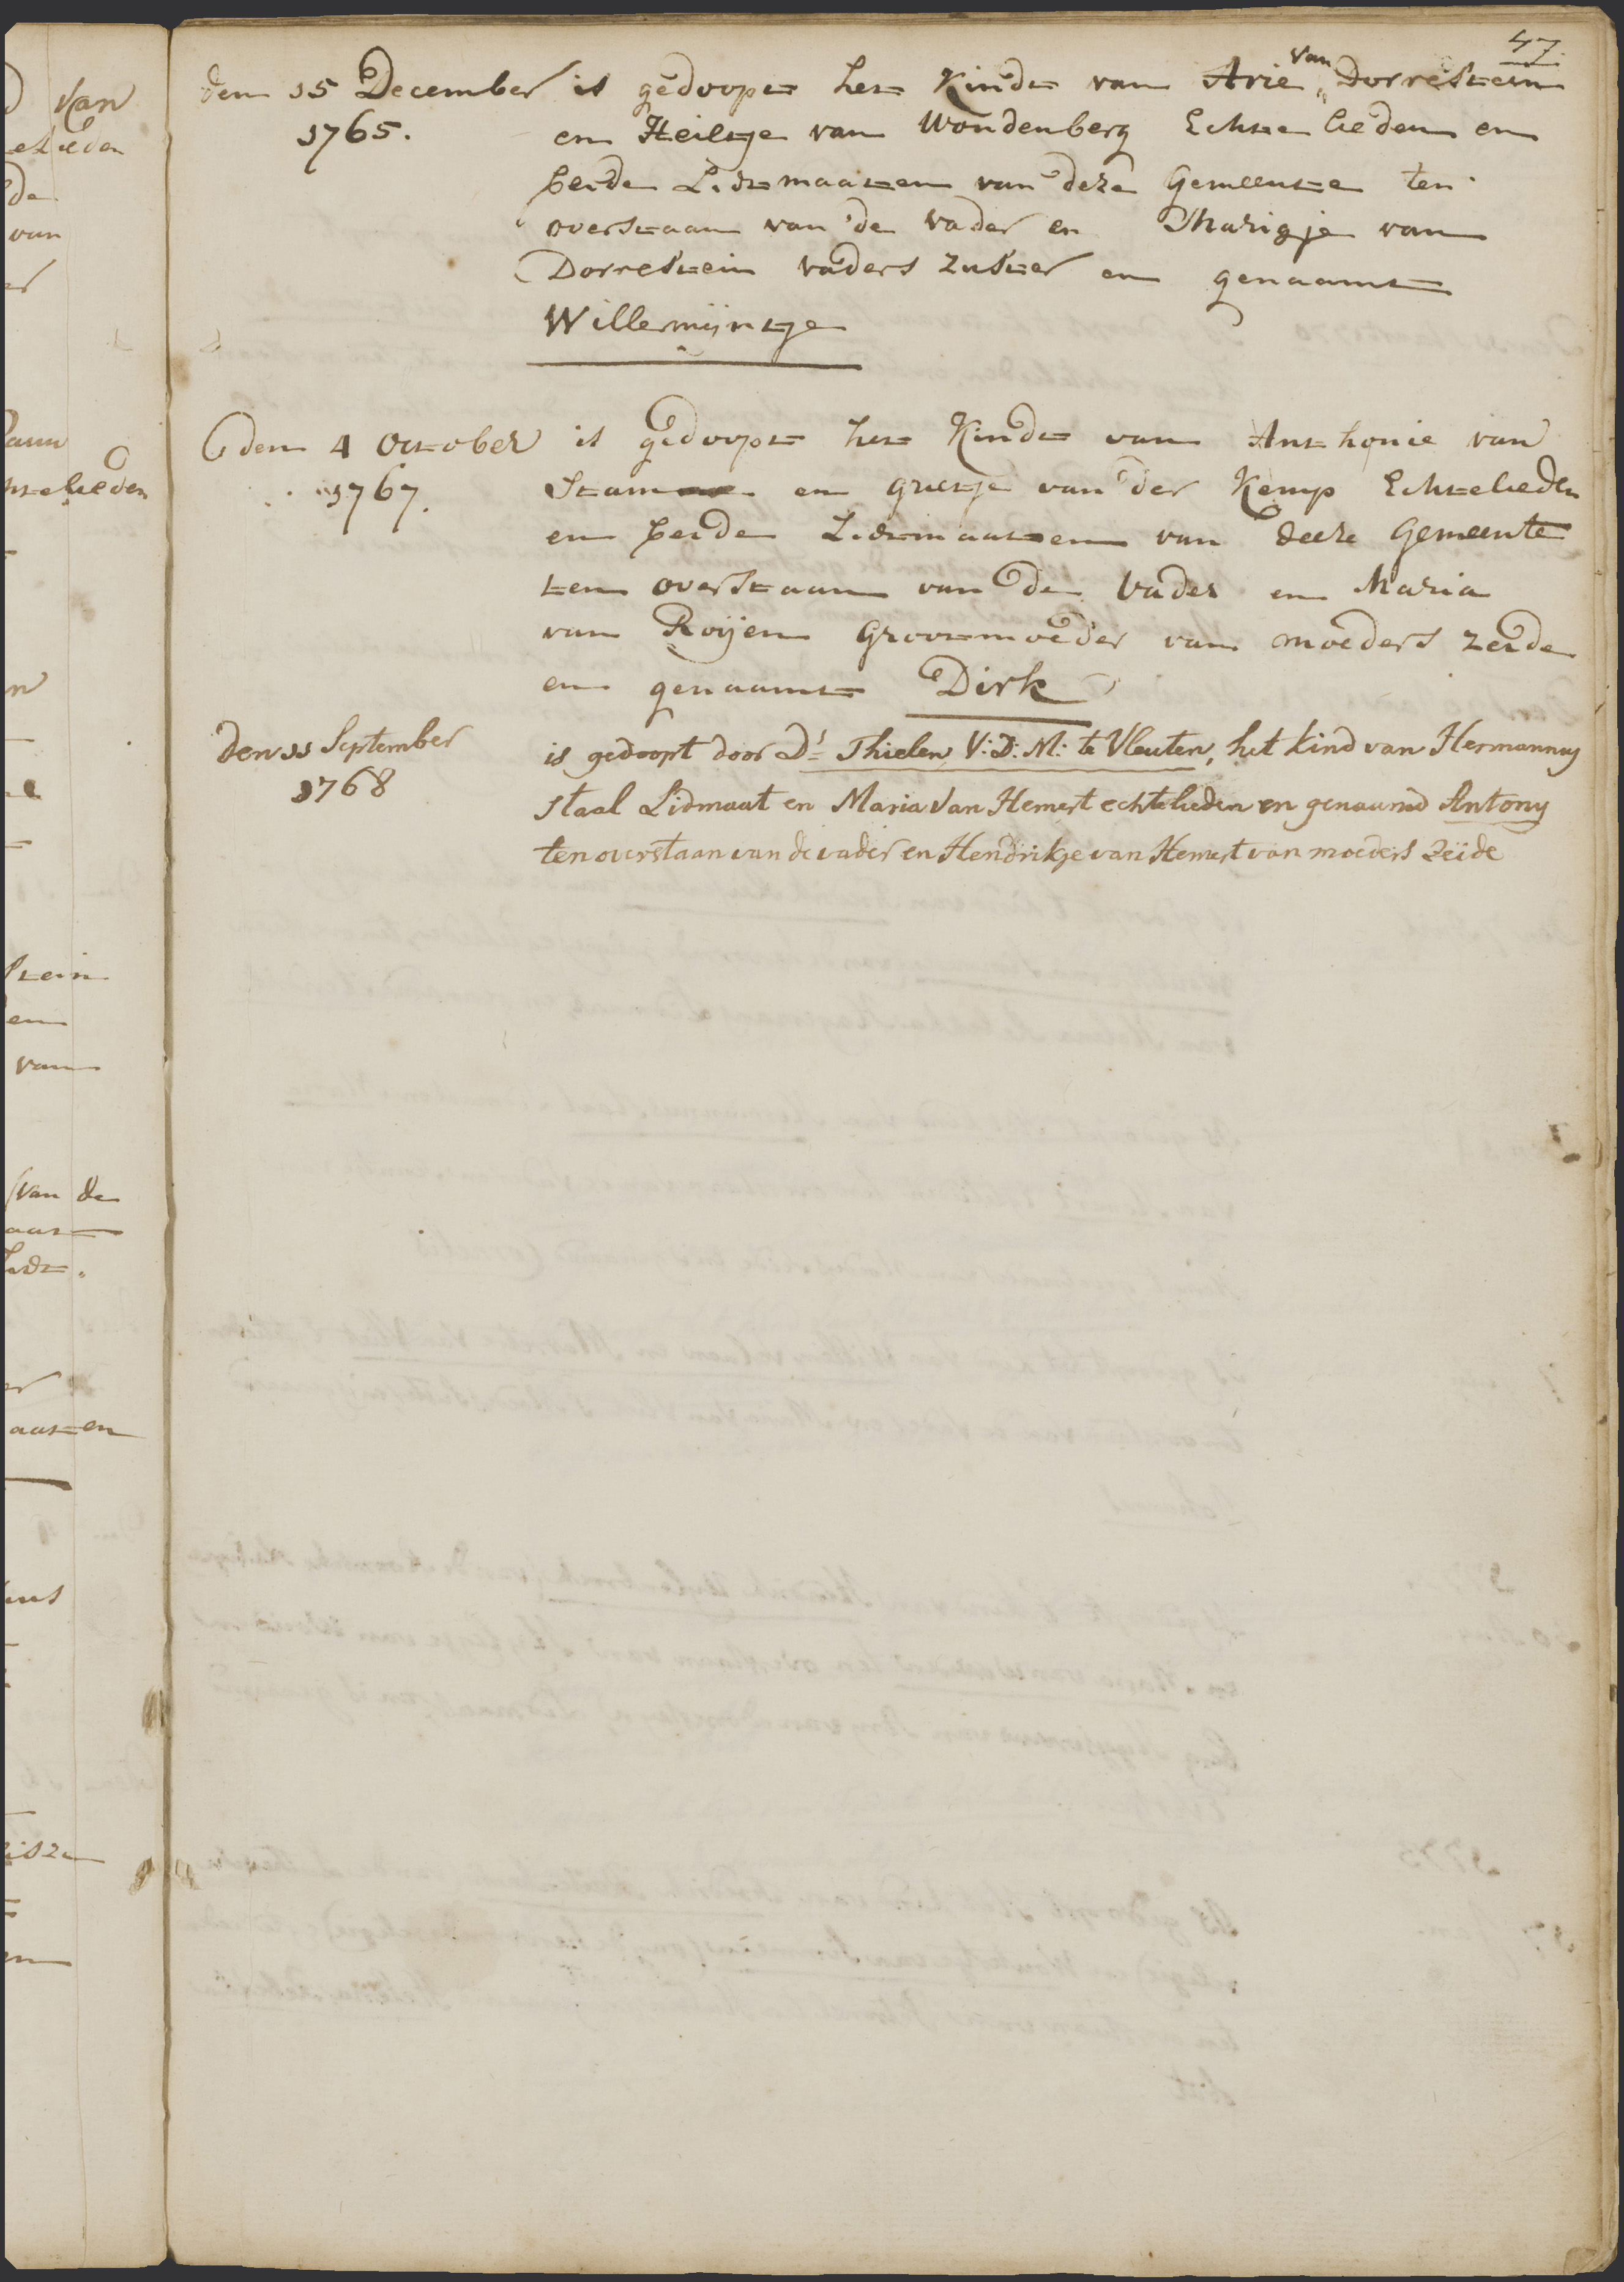 47.
den 15 December is gedoopt het Kindt van Arie van Dorrestein
1765. en Heiltje van Woudenberg Echte lieden en
beide Lidtmaaten van deze Gemeente ten
overstaan van de vader en Marigje van
Dorrestein vaders Zuster en genaamt
Willermijntje
den 4 October is gedoopt het Kindt van Anthonie van
1767. Stam en Grietje van der Kemp Echtelieden
en beide Lidtmaaten van deeze Gemeente
ten overstaan van de Vader en Maria
van Roijen Grootmoeder van moeders zeide
en genaamt Dirk
den 11 September is gedoopt door Ds Thielen V: D: M: te Vleuten, het kind van Hermannus
1768 Staal Lidmaat en Maria Van Hemert echtelieden en genaamd Antony
ten overstaan van de vader en Hendrikje van Hemert van moeders Zeide
van
elieden
de
van
telieden
n
stein
en
van
van de
aat
aaten